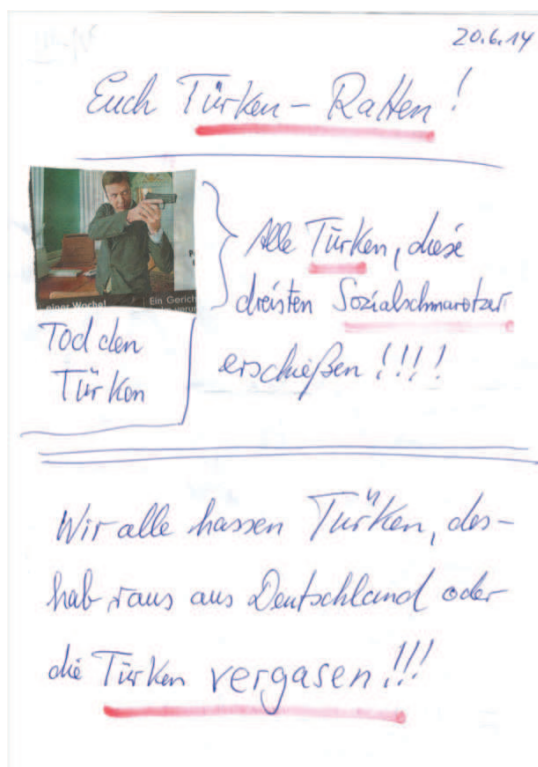 20.6.14
Euch Türken-Ratten!
einer Woche!
Ein Gerich
Tod den
Türken
Alle Türken, diese
dreisten Sozialschmarotzer
erschießen!!!!
Wir alle hassen Türken, des-
hab raus aus Deutschland oder
die Türken vergasen!!!